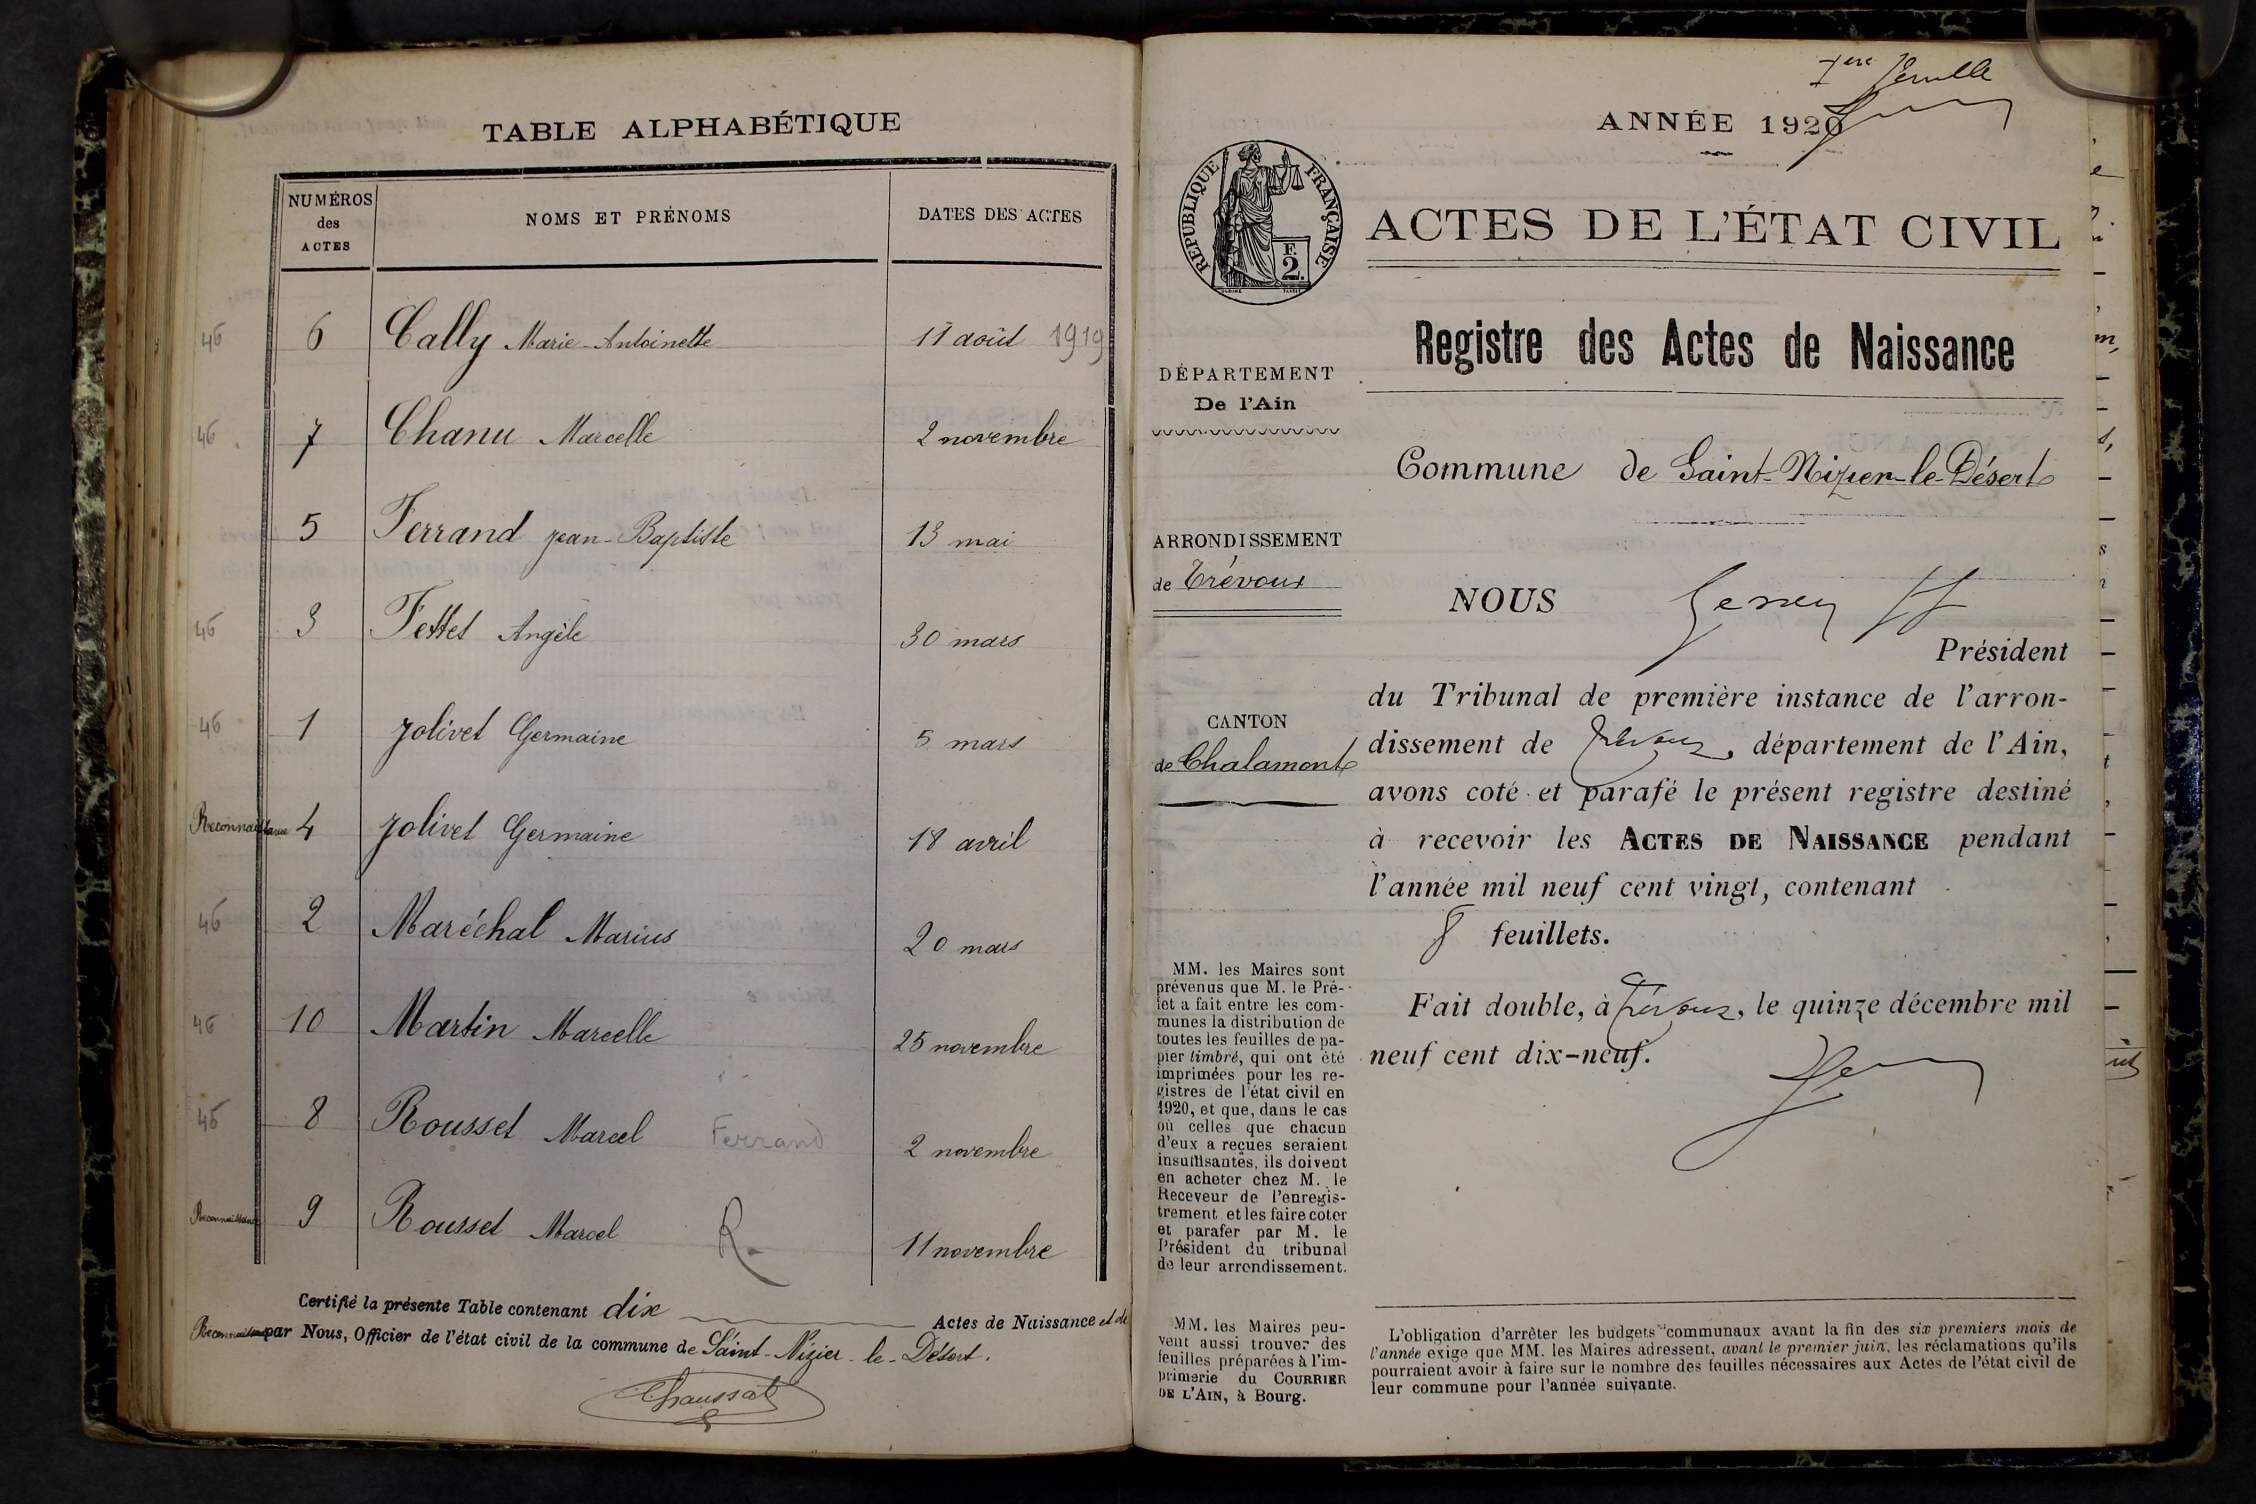 TABLE ALPHABÉTIQUE
NUMÉROS des ACTES NOMS ET PRÉNOMS DATES DES ACTES
46 6 Cally Marie-Antoinette 11 août 1919
46 7 Chanu Marcelle 2 novembre
5 Ferrand Jean-Baptiste 13 mai
46 3 Fettet Angèle 30 mars
46 1 Jolivet Germaine 5 mars
Reconnaissance 4 Jolivet Germaine 18 avril
46 2 Maréchal Marius 20 mars
46 10 Martin Marcelle 25 novembre
46 8 Rousset Marcel Ferrand 2 novembre
Reconnaissance 9 Rousset Marcel R. 11 novembre
Certifié la présente Table contenant dix Actes de Naissance et de
Reconnaissance par Nous, Officier de l'état civil de la commune de Saint-Nizier-le-Désert.
Chaussat
1ère feuille
ANNÉE 1920
RÉPUBLIQUE FRANÇAISE
F. 2.
ACTES DE L'ÉTAT CIVIL
Registre des Actes de Naissance
DÉPARTEMENT
De l'Ain
Commune de Saint-Nizier-le-Désert
ARRONDISSEMENT
de Trévoux
CANTON
de Chalamont
NOUS
Président
du Tribunal de première instance de l'arron-
dissement de Trévoux, département de l'Ain,
avons coté et parafé le présent registre destiné
à recevoir les ACTES DE NAISSANCE pendant
l'année mil neuf cent vingt, contenant
8 feuillets.
Fait double, à Trévoux, le quinze décembre mil
neuf cent dix-neuf.
MM. les Maires sont
prévenus que M. le Pré-
fet a fait entre les com-
munes la distribution de
toutes les feuilles de pa-
pier timbré, qui ont été
imprimées pour les re-
gistres de l'état civil en
1920, et que, dans le cas
où celles que chacun
d'eux a reçues seraient
insuffisantes, ils doivent
en acheter chez M. le
Receveur de l'enregis-
trement et les faire coter
et parafer par M. le
Président du tribunal
de leur arrondissement.
MM. les Maires peu-
vent aussi trouver des
feuilles préparées à l'im-
primerie du COURRIER
DE L'AIN, à Bourg.
L'obligation d'arrêter les budgets communaux avant la fin des six premiers mois de
l'année exige que MM. les Maires adressent, avant le premier juin, les réclamations qu'ils
pourraient avoir à faire sur le nombre des feuilles nécessaires aux Actes de l'état civil de
leur commune pour l'année suivante.